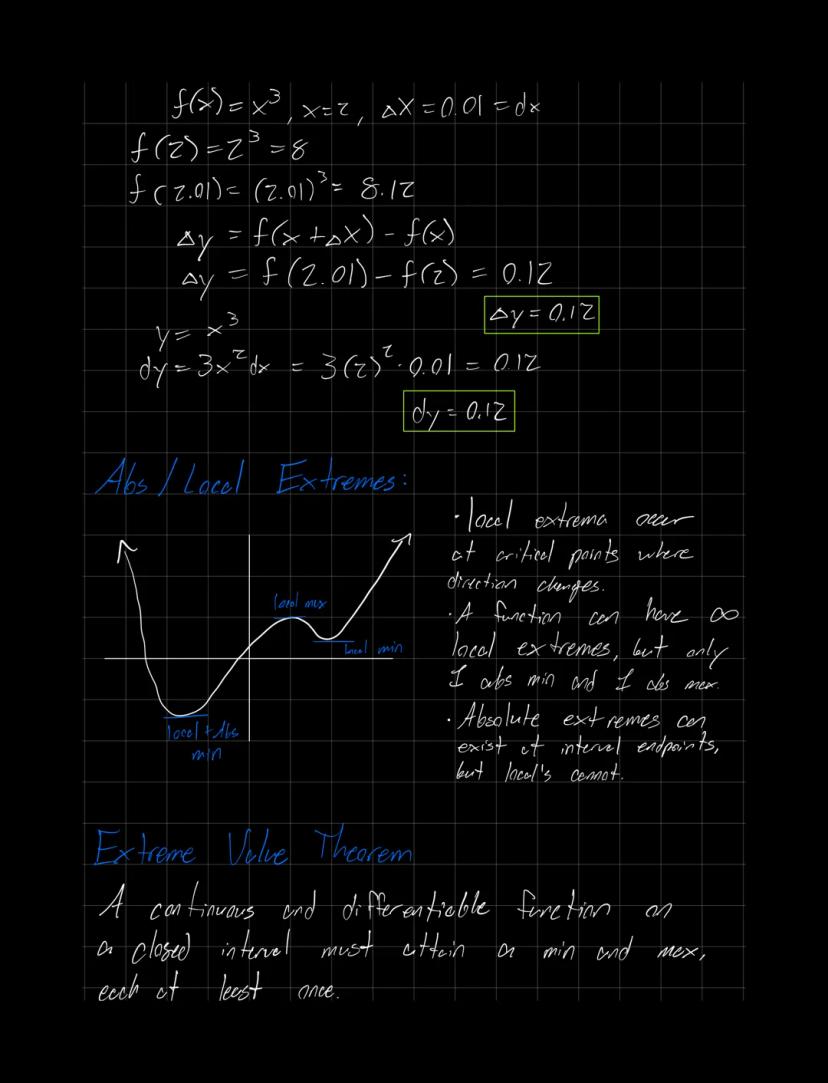 f(x) = x³, x=2, Δx = 0.01 = dx
f(2) = 2³ = 8
f(2.01) = (2.01)³ = 8.12
Δy = f(x + Δx) - f(x)
Δy = f(2.01) - f(2) = 0.12
Δy = 0.12
y = x³
dy = 3x²dx = 3(2)² · 0.01 = 0.12
dy = 0.12
Abs / Local Extremes:
• local extrema occur
at critical points where
direction changes.
• A function can have ∞
local extremes, but only
1 abs min and 1 abs max.
• Absolute extremes can
exist at interval endpoints,
but local's cannot.
local max
local min
local + Abs
min
Extreme Value Theorem
A continuous and differentiable function on
a closed interval must attain a min and max,
each at least once.